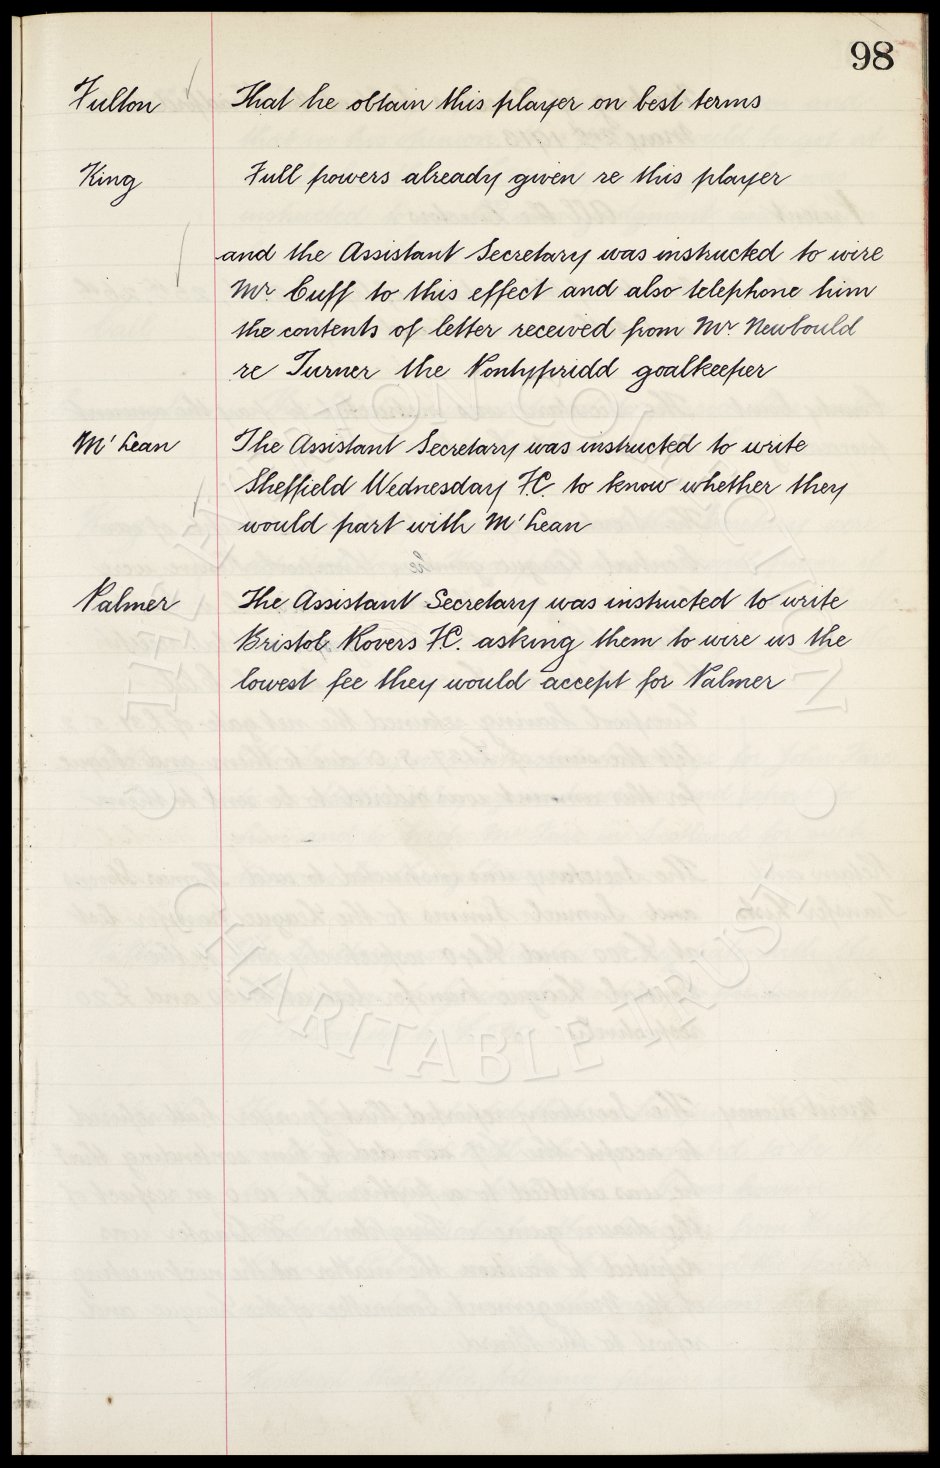 98
Fulton That he obtain this player on best terms
King Full powers already given re this player
and the Assistant Secretary was instructed to wire
Mr. Cuff to this effect and also telephone him
the contents of letter received from Mr. Newbould
re Turner the Pontypridd goalkeeper
M'Lean The Assistant Secretary was instructed to write
Sheffield Wednesday F.C. to know whether they
would part with M'Lean
Palmer The Assistant Secretary was instructed to write
Bristol Rovers F.C. asking them to wire us the
lowest fee they would accept for Palmer
CHARITABLE TRUST